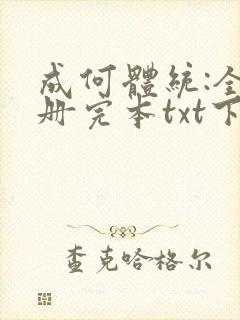 成何體統:全
册完本txt下
查克哈格尔